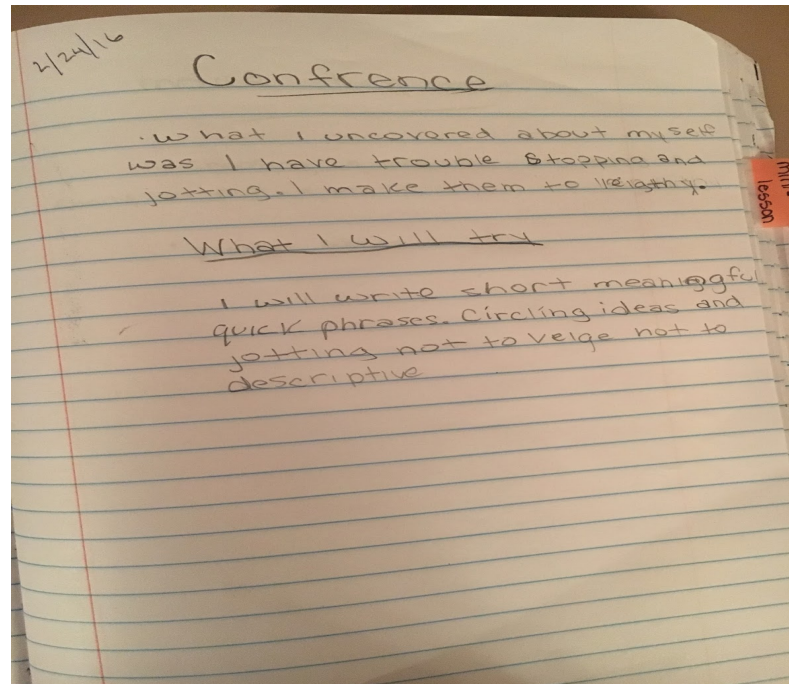 2/24/16
Confrence
. what I uncovered about myself
was I have trouble stopping and
jotting. I make them to leigthy.
What I will try
I will write short meaningful
quick phrases. Circling ideas and
jotting not to veige not to
descriptive
lesson